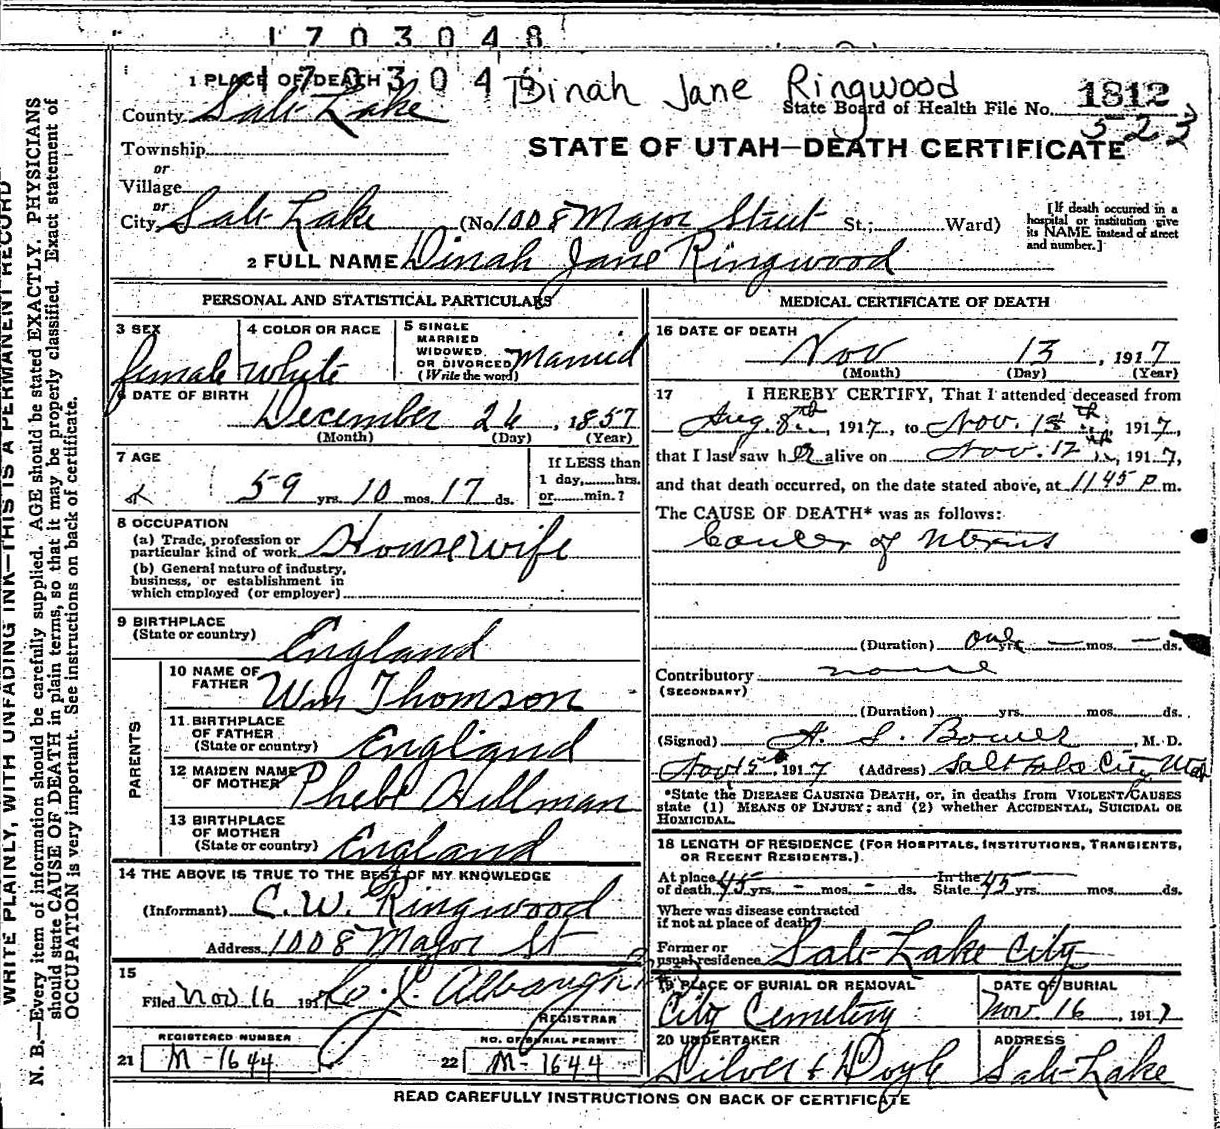 1703048
1 PLACE OF DEATH 1703048 Dinah Jane Ringwood
County Salt Lake State Board of Health File No. 1812
523
Township
or
Village
or
STATE OF UTAH—DEATH CERTIFICATE
City Salt Lake (No. 1008 Major Street St.; Ward)
[If death occurred in a hospital or institution give its NAME instead of street and number.]
2 FULL NAME Dinah Jane Ringwood
PERSONAL AND STATISTICAL PARTICULARS
3 SEX female
4 COLOR OR RACE white
5 SINGLE MARRIED WIDOWED OR DIVORCED (Write the word) Married
6 DATE OF BIRTH
December 26, 1857
(Month) (Day) (Year)
7 AGE
59 yrs. 10 mos. 17 ds.
If LESS than
1 day, hrs.
or min.?
8 OCCUPATION
(a) Trade, profession or
particular kind of work Housewife
(b) General nature of industry,
business, or establishment in
which employed (or employer)
9 BIRTHPLACE
(State or country) England
PARENTS
10 NAME OF
FATHER Wm Thomson
11 BIRTHPLACE
OF FATHER
(State or country) England
12 MAIDEN NAME
OF MOTHER Phebe Hillman
13 BIRTHPLACE
OF MOTHER
(State or country) England
14 THE ABOVE IS TRUE TO THE BEST OF MY KNOWLEDGE
(Informant) C. W. Ringwood
Address 1008 Major St
15
Filed Nov 16 191
REGISTRAR
REGISTERED NUMBER
21 M-1644
NO. OF BURIAL PERMIT
22 M-1644
MEDICAL CERTIFICATE OF DEATH
16 DATE OF DEATH
Nov 13, 1917
(Month) (Day) (Year)
17 I HEREBY CERTIFY, That I attended deceased from
Aug. 8th, 1917, to Nov. 13th, 1917,
that I last saw her alive on Nov. 12th, 1917,
and that death occurred, on the date stated above, at 1145 P. m.
The CAUSE OF DEATH* was as follows:
Cancer of Uterus
(Duration) one yrs. — mos. — ds.
Contributory none
(SECONDARY)
(Duration) yrs. mos. ds.
(Signed) A. S. Bower, M. D.
Nov 15, 1917 (Address) Salt Lake City Utah
*State the DISEASE CAUSING DEATH, or, in deaths from VIOLENT CAUSES
state (1) MEANS OF INJURY; and (2) whether ACCIDENTAL, SUICIDAL OR
HOMICIDAL.
18 LENGTH OF RESIDENCE (FOR HOSPITALS, INSTITUTIONS, TRANSIENTS,
OR RECENT RESIDENTS.)
At place In the
of death 45 yrs. - mos. - ds. State 45 yrs. mos. ds.
Where was disease contracted
if not at place of death?
Former or
usual residence Salt Lake City
19 PLACE OF BURIAL OR REMOVAL
City Cemetery
DATE OF BURIAL
Nov. 16, 1917
20 UNDERTAKER
Silver & Doyle
ADDRESS
Salt Lake
READ CAREFULLY INSTRUCTIONS ON BACK OF CERTIFICATE
WRITE PLAINLY, WITH UNFADING INK—THIS IS A PERMANENT RECORD
N. B.—Every item of information should be carefully supplied. AGE should be stated EXACTLY. PHYSICIANS
should state CAUSE OF DEATH in plain terms, so that it may be properly classified. Exact statement of
OCCUPATION is very important. See instructions on back of certificate.